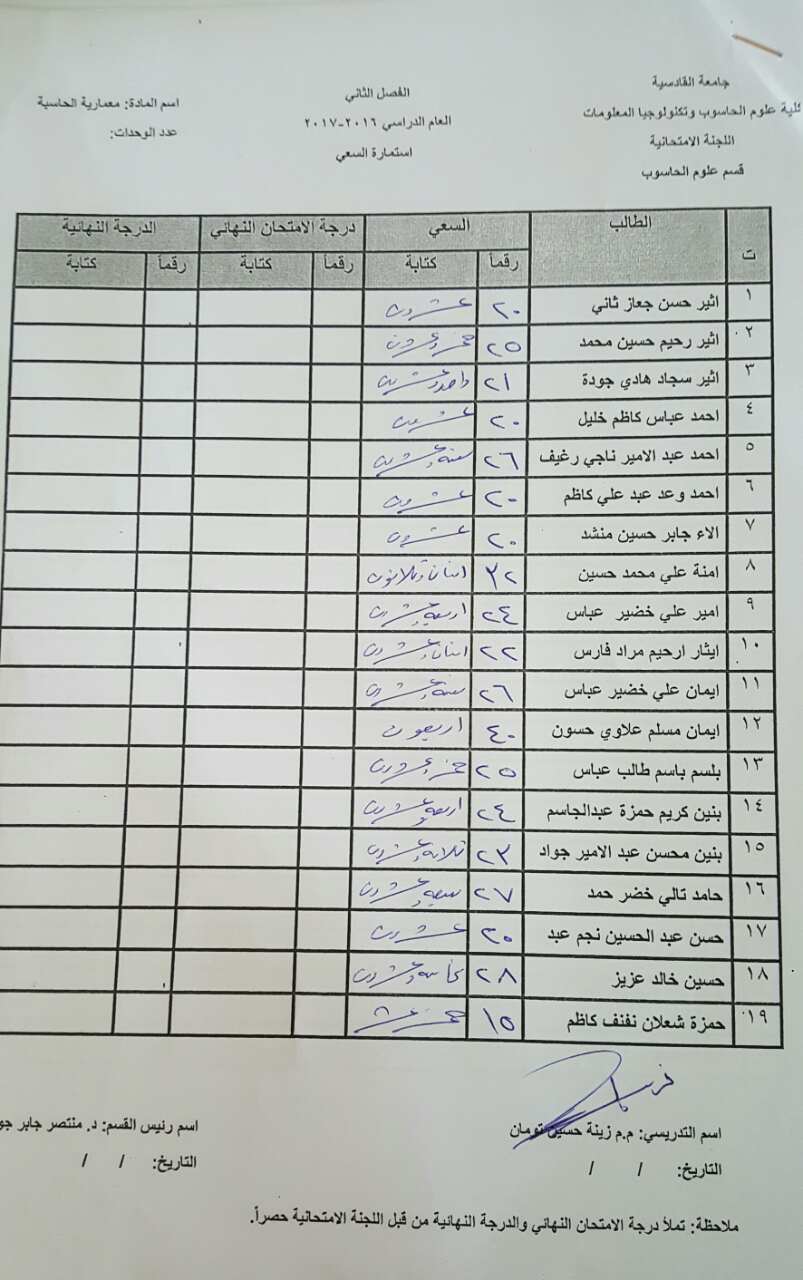 جامعة القادسية
كلية علوم الحاسوب وتكنولوجيا المعلومات
اللجنة الامتحانية
قسم علوم الحاسوب
الفصل الثاني
العام الدراسي ٢٠١٦-٢٠١٧
استمارة السعي
اسم المادة: معمارية الحاسبة
عدد الوحدات:
ت الطالب السعي درجة الامتحان النهائي الدرجة النهائية
رقماً كتابة رقماً كتابة رقماً كتابة
١ اثير حسن جعاز ثاني ٢٠ عشرون
٢ اثير رحيم حسين محمد ٢٥ خمس وعشرون
٣ اثير سجاد هادي جودة ٢١ واحد وعشرين
٤ احمد عباس كاظم خليل ٢٠ عشرون
٥ احمد عبد الامير ناجي رغيف ٢٦ ستة وعشرين
٦ احمد وعد عبد علي كاظم ٢٠ عشرون
٧ الاء جابر حسين منشد ٢٠ عشرون
٨ امنة علي محمد حسين ٣٢ اثنان وثلاثون
٩ امير علي خضير عباس ٢٤ اربعة وعشرون
١٠ ايثار ارحيم مراد فارس ٢٢ اثنان وعشرون
١١ ايمان علي خضير عباس ٢٦ ستة وعشرون
١٢ ايمان مسلم علاوي حسون ٤٠ اربعون
١٣ بلسم باسم طالب عباس ٢٥ خمس وعشرون
١٤ بنين كريم حمزة عبدالجاسم ٢٤ اربعة وعشرين
١٥ بنين محسن عبد الامير جواد ٢٣ ثلاثة وعشرون
١٦ حامد تالي خضر حمد ٢٧ سبعة وعشرون
١٧ حسن عبد الحسين نجم عبد ٢٠ عشرون
١٨ حسين خالد عزيز ٢٨ ثمانية وعشرون
١٩ حمزة شعلان نفنف كاظم ١٥ خمس عشر
اسم التدريسي: م.م زينة حسين تومان
التاريخ: / /
اسم رئيس القسم: د. منتصر جابر جو
التاريخ: / /
ملاحظة: تملأ درجة الامتحان النهائي والدرجة النهائية من قبل اللجنة الامتحانية حصراً.